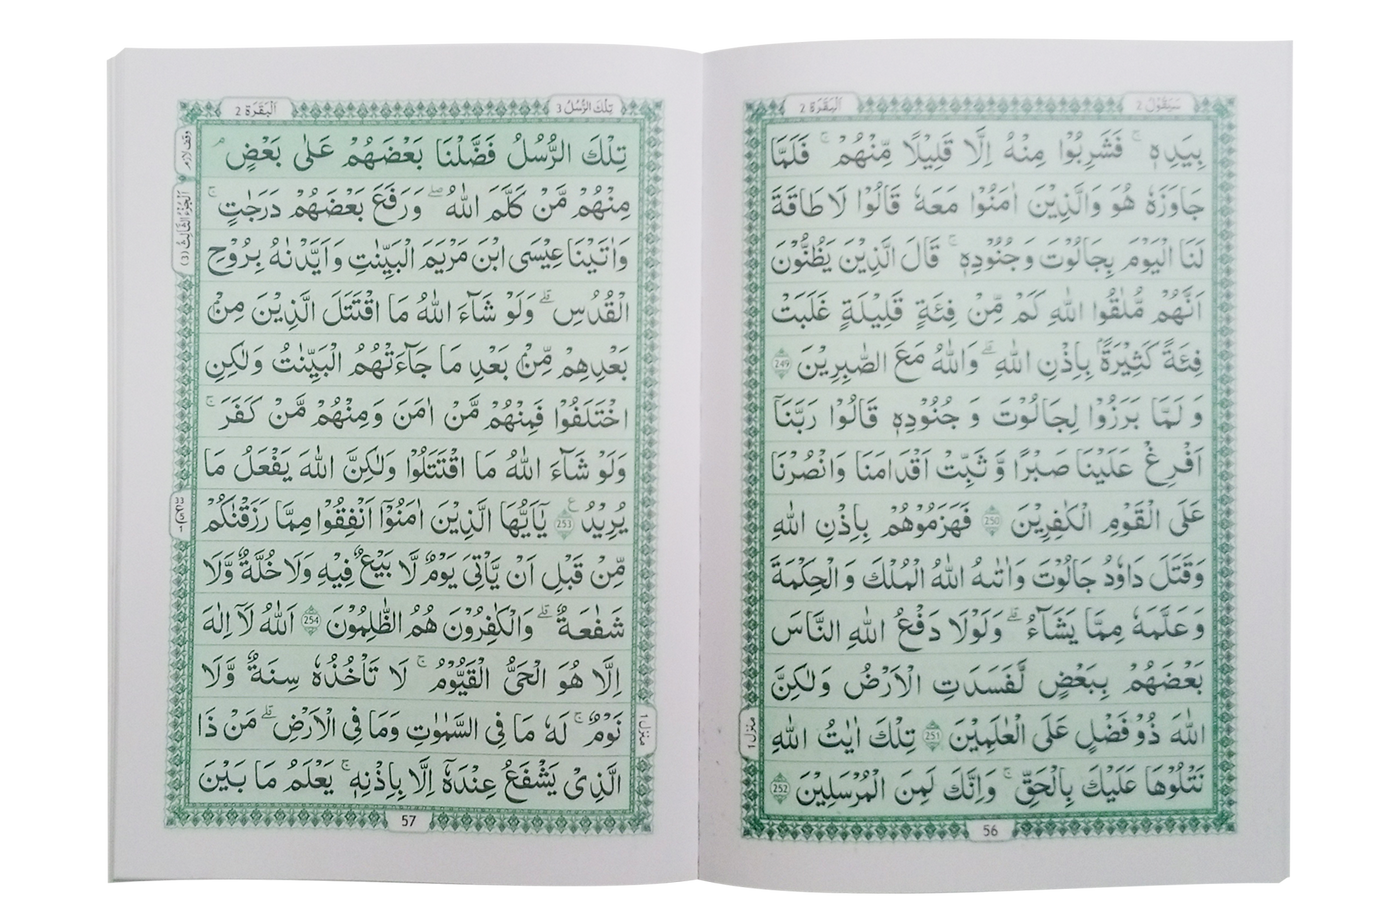 سَيَقُوْلُ 2
اَلْبَقَرَة 2
بِيَدِهٖ ۚ فَشَرِبُوْا مِنْهُ اِلَّا قَلِيْلًا مِّنْهُمْ ۚ فَلَمَّا
جَاوَزَهٗ هُوَ وَالَّذِيْنَ اٰمَنُوْا مَعَهٗ قَالُوْا لَا طَاقَةَ
لَنَا الْيَوْمَ بِجَالُوْتَ وَجُنُوْدِهٖ ۚ قَالَ الَّذِيْنَ يَظُنُّوْنَ
اَنَّهُمْ مُّلٰقُوا اللّٰهِ كَمْ مِّنْ فِئَةٍ قَلِيْلَةٍ غَلَبَتْ
فِئَةً كَثِيْرَةًۢ بِاِذْنِ اللّٰهِ ۗ وَاللّٰهُ مَعَ الصّٰبِرِيْنَ 249
وَ لَمَّا بَرَزُوْا لِجَالُوْتَ وَ جُنُوْدِهٖ قَالُوْا رَبَّنَآ
اَفْرِغْ عَلَيْنَا صَبْرًا وَّ ثَبِّتْ اَقْدَامَنَا وَانْصُرْنَا
عَلَى الْقَوْمِ الْكٰفِرِيْنَ 250 فَهَزَمُوْهُمْ بِاِذْنِ اللّٰهِ
وَقَتَلَ دَاوٗدُ جَالُوْتَ وَاٰتٰىهُ اللّٰهُ الْمُلْكَ وَ الْحِكْمَةَ
وَ عَلَّمَهٗ مِمَّا يَشَآءُ ۗ وَلَوْلَا دَفْعُ اللّٰهِ النَّاسَ
بَعْضَهُمْ بِبَعْضٍ لَّفَسَدَتِ الْاَرْضُ وَلٰكِنَّ
اللّٰهَ ذُوْ فَضْلٍ عَلَى الْعٰلَمِيْنَ 251 تِلْكَ اٰيٰتُ اللّٰهِ
نَتْلُوْهَا عَلَيْكَ بِالْحَقِّ ۚ وَاِنَّكَ لَمِنَ الْمُرْسَلِيْنَ 252
منزل ١
56
تِلْكَ الرُّسُلُ 3
اَلْبَقَرَة 2
تِلْكَ الرُّسُلُ فَضَّلْنَا بَعْضَهُمْ عَلٰى بَعْضٍ ۘ
مِنْهُمْ مَّنْ كَلَّمَ اللّٰهُ ۖ وَرَفَعَ بَعْضَهُمْ دَرَجٰتٍ ۚ
وَاٰتَيْنَا عِيْسَى ابْنَ مَرْيَمَ الْبَيِّنٰتِ وَاَيَّدْنٰهُ بِرُوْحِ
الْقُدُسِ ۗ وَلَوْ شَآءَ اللّٰهُ مَا اقْتَتَلَ الَّذِيْنَ مِنْۢ
بَعْدِهِمْ مِّنْۢ بَعْدِ مَا جَآءَتْهُمُ الْبَيِّنٰتُ وَلٰكِنِ
اخْتَلَفُوْا فَمِنْهُمْ مَّنْ اٰمَنَ وَمِنْهُمْ مَّنْ كَفَرَ ۚ
وَلَوْ شَآءَ اللّٰهُ مَا اقْتَتَلُوْا وَلٰكِنَّ اللّٰهَ يَفْعَلُ مَا
يُرِيْدُ ع 253 يٰٓاَيُّهَا الَّذِيْنَ اٰمَنُوْٓا اَنْفِقُوْا مِمَّا رَزَقْنٰكُمْ
مِّنْ قَبْلِ اَنْ يَّاْتِيَ يَوْمٌ لَّا بَيْعٌ فِيْهِ وَلَا خُلَّةٌ وَّلَا
شَفٰعَةٌ ۗ وَالْكٰفِرُوْنَ هُمُ الظّٰلِمُوْنَ 254 اَللّٰهُ لَآ اِلٰهَ
اِلَّا هُوَ الْحَيُّ الْقَيُّوْمُ ۚ لَا تَاْخُذُهٗ سِنَةٌ وَّلَا
نَوْمٌ ۚ لَهٗ مَا فِي السَّمٰوٰتِ وَمَا فِي الْاَرْضِ ۗ مَنْ ذَا
الَّذِيْ يَشْفَعُ عِنْدَهٗٓ اِلَّا بِاِذْنِهٖ ۚ يَعْلَمُ مَا بَيْنَ
وقف لازم
اَلْجُزْءُ الثَّالِثُ (3)
33
منزل ١
57